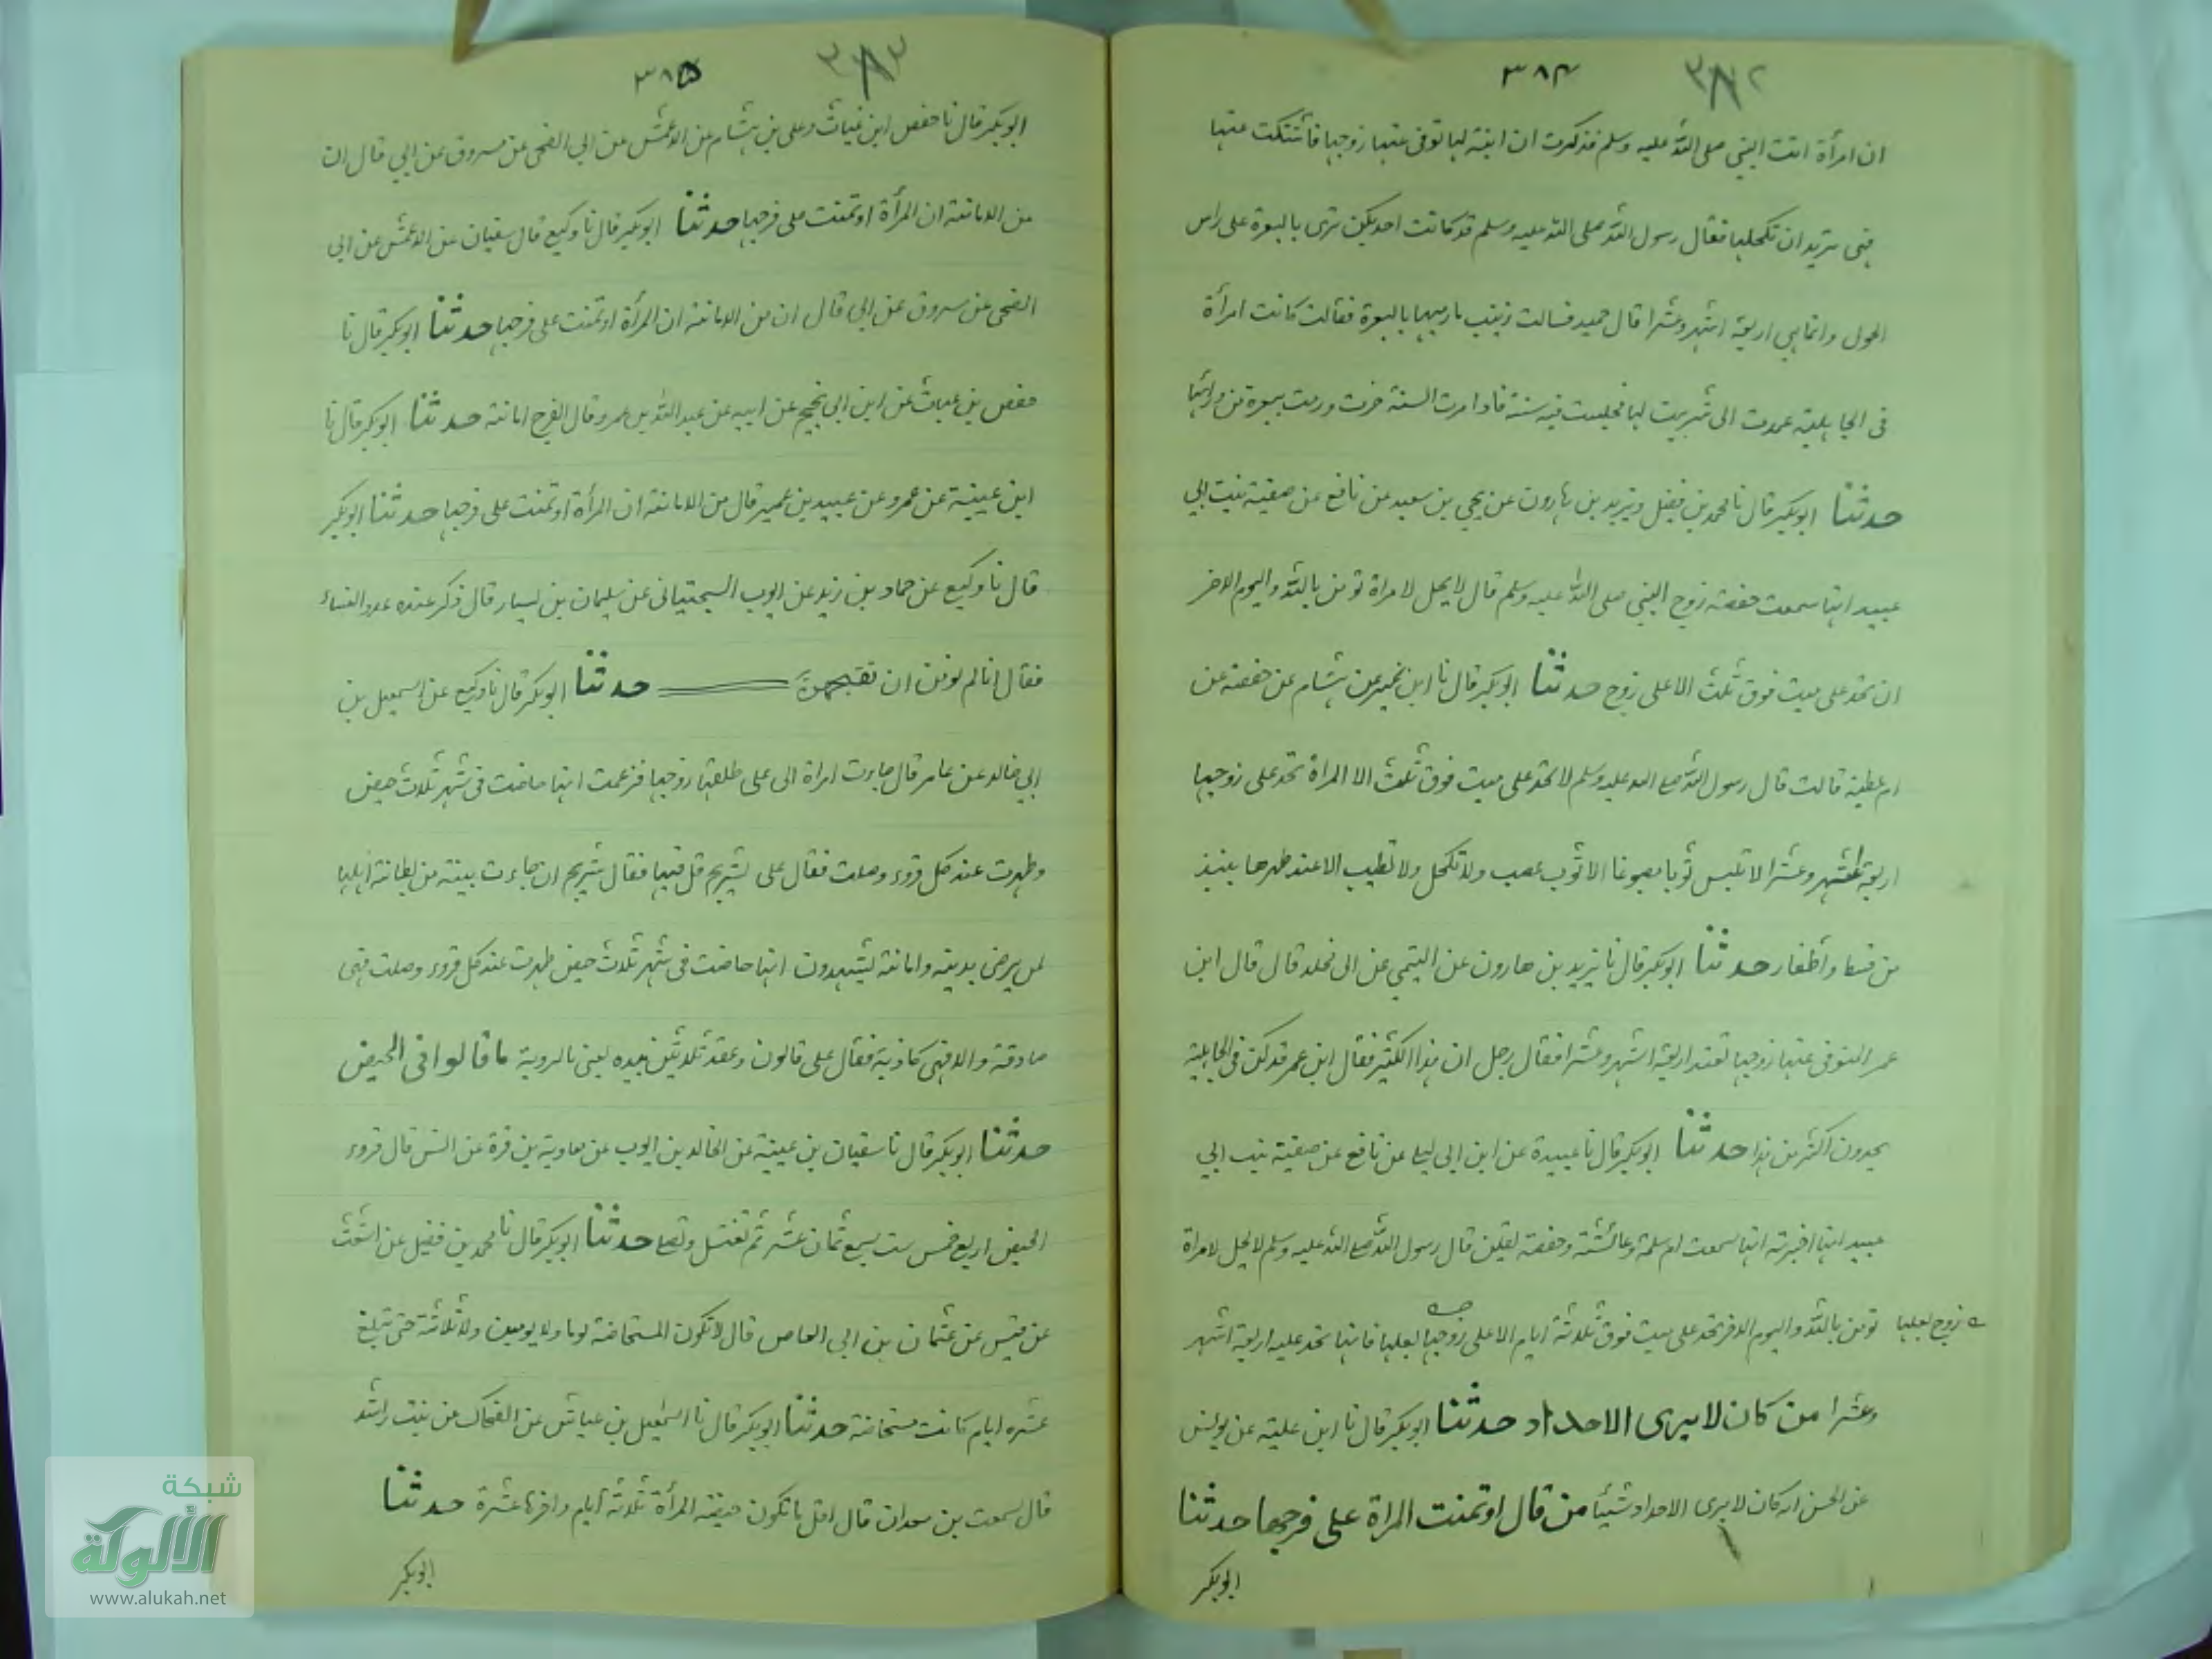 ٣٨٤ ٣٨٢
ان امرأة اتت النبي صلى الله عليه وسلم فذكرت ان ابنة لها توفى عنها زوجها فاشتكت عينها
فهى تريد ان تكحلها فقال رسول الله صلى الله عليه وسلم قد كانت احديكن ترى بالبعرة على راس
الحول وانما هي اربعة اشهر وعشرا قال حميد فسالت زينب ما رميها بالبعرة فقالت كانت امرأة
فى الجاهلية عمدت الى شر بيت لها فجلست فيه سنة فاذا مرت السنة خرجت ورمت ببعرة من ورائها
حدثنا ابوبكر قال نا محمد بن فضيل ويزيد بن هارون عن يحيى بن سعيد عن نافع عن صفية بنت ابي
عبيد انها سمعت حفصة زوج النبي صلى الله عليه وسلم قال لا يحل لامراة تومن بالله واليوم الاخر
ان تحد على ميت فوق ثلث الا على زوج حدثنا ابوبكر قال نا ابن نمير عن هشام عن حفصة عن
ام عطية قالت قال رسول الله صلى الله عليه وسلم لا تحد على ميت فوق ثلث الا المراة تحد على زوجها
اربعة اشهر وعشرا لا تلبس ثوبا مصبوغا الا ثوب عصب ولا تكتحل ولا تطيب الا عند طهرها بنبذ
من قسط واظفار حدثنا ابوبكر قال نا يزيد بن هارون عن التيمي عن ابى مخلد قال قال ابن
عمر المتوفى عنها زوجها تعتد اربعة اشهر وعشرا فقال رجل ان هذا الكثير فقال ابن عمر قد كن فى الجاهلية
يحدون اكثر من هذا حدثنا ابوبكر قال نا عبيدة عن ابن ابي ليلى عن نافع عن صفية بنت ابي
عبيد انها اخبرته انها سمعت ام سلمة وعائشة وحفصة يقلن قال رسول الله صلى الله عليه وسلم لا يحل لامراة
تومن بالله واليوم الاخر تحد على ميت فوق ثلاثة ايام الا على زوجها لبعلها فانها تحد عليه اربعة اشهر
زوج لبعلها
وعشرا من كان لا يرى الاحداد حدثنا ابوبكر قال نا ابن علية عن يونس
عن الحسن انه كان لا يرى الاحداد شيئا من قال اوتمنت المراة على فرجها حدثنا
ابوبكر
٣٨٥ ٣٨٣
ابوبكر قال نا حفص ابن غياث وعلى بن هشام عن الاعمش عن ابي الضحى عن مسروق عن ابي قال ان
من الامانة ان المرأة اوتمنت على فرجها حدثنا ابوبكر قال نا وكيع قال سفيان عن الاعمش عن ابي
الضحى عن مسروق عن ابي قال ان من الامانة ان المرأة اوتمنت على فرجها حدثنا ابوبكر قال نا
حفص بن غياث عن ابن ابي نجيح عن ابيه عن عبد الله بن عمرو قال الفرج امانة حدثنا ابوبكر قال نا
ابن عيينة عن عمرو عن عبيد بن عمير قال من الامانة ان المرأة اوتمنت على فرجها حدثنا ابوبكر
قال نا وكيع عن حماد بن زيد عن ايوب السجتيانى عن سليمان بن يسار قال ذكر عنده عدد النساء
فقال انا لم نومن ان نفتحهن حدثنا ابوبكر قال نا وكيع عن اسمعيل بن
ابي خالد عن عامر قال جاءت امراة الى على طلقها زوجها فزعمت انها حاضت فى شهر ثلاث حيض
وطهرت عند كل قروء وصلت فقال على لشريح قل فيها فقال شريح ان جاءت بينة من بطانة اهلها
ممن يرضى بدينه وامانته يشهدون انها حاضت فى شهر ثلاث حيض طهرت عند كل قروء وصلت فهى
صادقة والا فهى كاذبة فقال على قالون وعقد ثلاثين بيده يعنى بالرومية ما قالوا فى الحيض
حدثنا ابوبكر قال نا سفيان بن عيينة عن الخالد بن ايوب عن معاوية بن قرة عن انس قال قروء
الحيض اربع خمس ست سبع ثمان عشر ثم تغتسل وتصلى حدثنا ابوبكر قال نا محمد بن فضيل عن اشعث
عن قيس عن عثمان بن ابى العاص قال لا تكون المستحاضة يوما ولا يومين ولا ثلاثة حتى تبلغ
عشره ايام كانت مستحاضة حدثنا ابوبكر قال نا اسمعيل بن عياش عن الضحاك عن بنت راشد
قال سمعت بن معدان قال اقل ما تكون حيضة المرأة ثلاثة ايام واخرها عشرة حدثنا
ابوبكر
شبكة
الألوكة
www.alukah.net